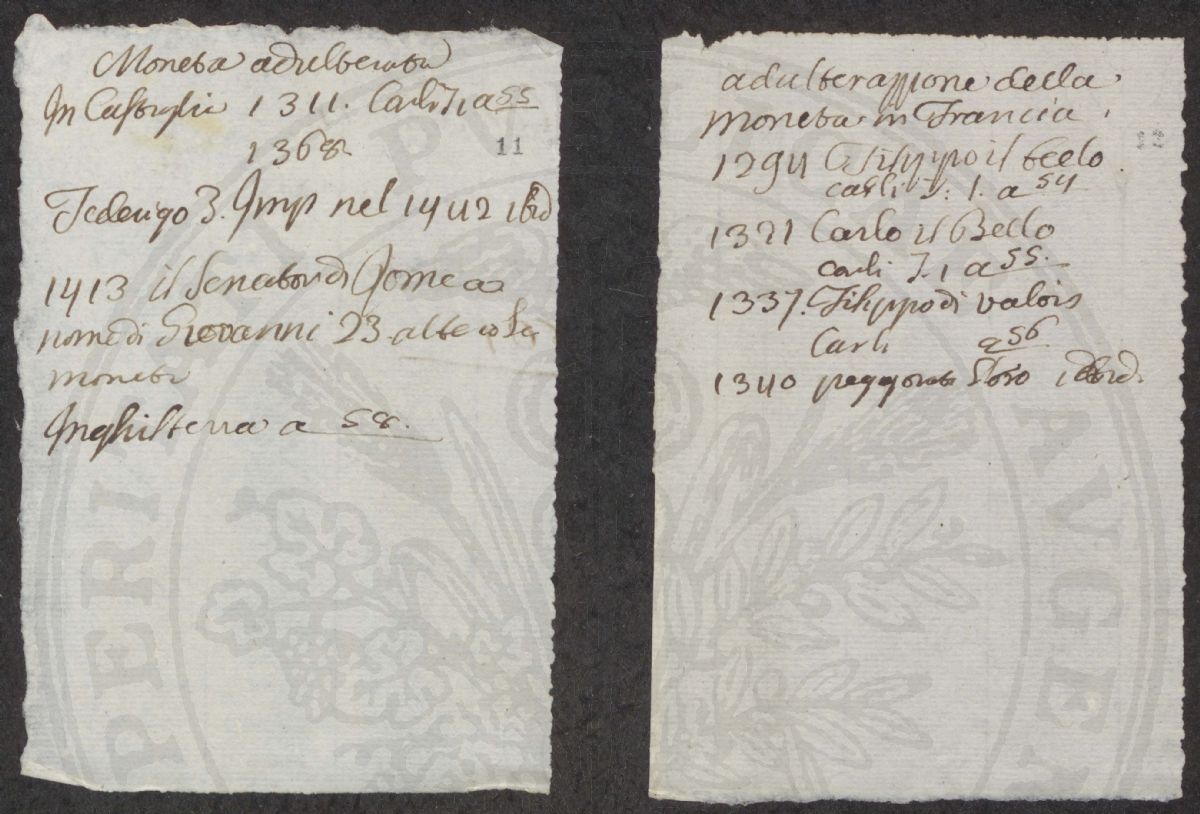 Moneta adulterata
In Castiglia 1311. Carli T. 1 a 55
1368
11
Federigo 3. Imp nel 1442 ibid
1413 il Senator di Rome a
nome di Giovanni 23 altero la
moneta
Inghilterra a 58.
adulterazzione della
moneta in Francia
22
1294 Filippo il bello
carli T. 1. a 54
1321 Carlo il Bello
carli T. 1 a 55.
1337. Filippo di valois
Carli a 56
1340 peggiorata l'oro ibid.
PERI PVBLICAE AVGE